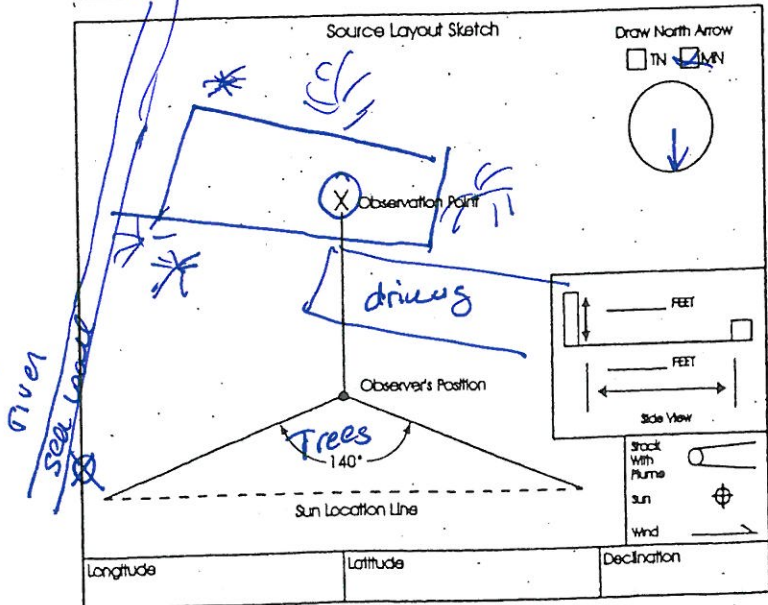 Source Layout Sketch
Draw North Arrow
TN MN
X Observation Point
driving
FEET
FEET
Side View
River
sea wall
Observer's Position
Trees
140°
Sun Location Line
Stack
With
Plume
Sun
Wind
Longitude
Latitude
Declination